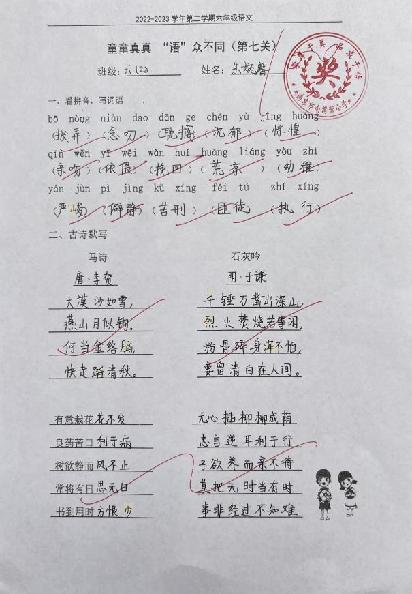 2022-2023学年第二学期六年级语文
童童真真 “语”众不同（第七关）
班级：六(2) 姓名：
一、看拼音，写词语。
bō nòng niǎo dào dān ge chén yù jīng huáng
（拨弄）（忽勿）（耽搁）（沉郁）（惊惶）
qīn wěn yī wēi wǎn huí huāng liáng yòu zhì
（亲吻）（依偎）（挽回）（荒凉）（幼稚）
yán jùn pì jìng kǔ xíng féi tú zhí xíng
（严峻）（僻静）（苦刑）（匪徒）（执行）
二、古诗默写
马诗 石灰吟
唐·李贺 明·于谦
大漠沙如雪， 千锤万凿出深山，
燕山月似钩。 烈火焚烧若等闲。
何当金络脑， 粉骨碎身浑不怕，
快走踏清秋。 要留清白在人间。
有意栽花花不发 无心插柳柳成荫
良药苦口利于病 忠言逆耳利于行
树欲静而风不止 子欲养而亲不待
常将有日思无日 莫把无时当有时
书到用时方恨少 事非经过不知难